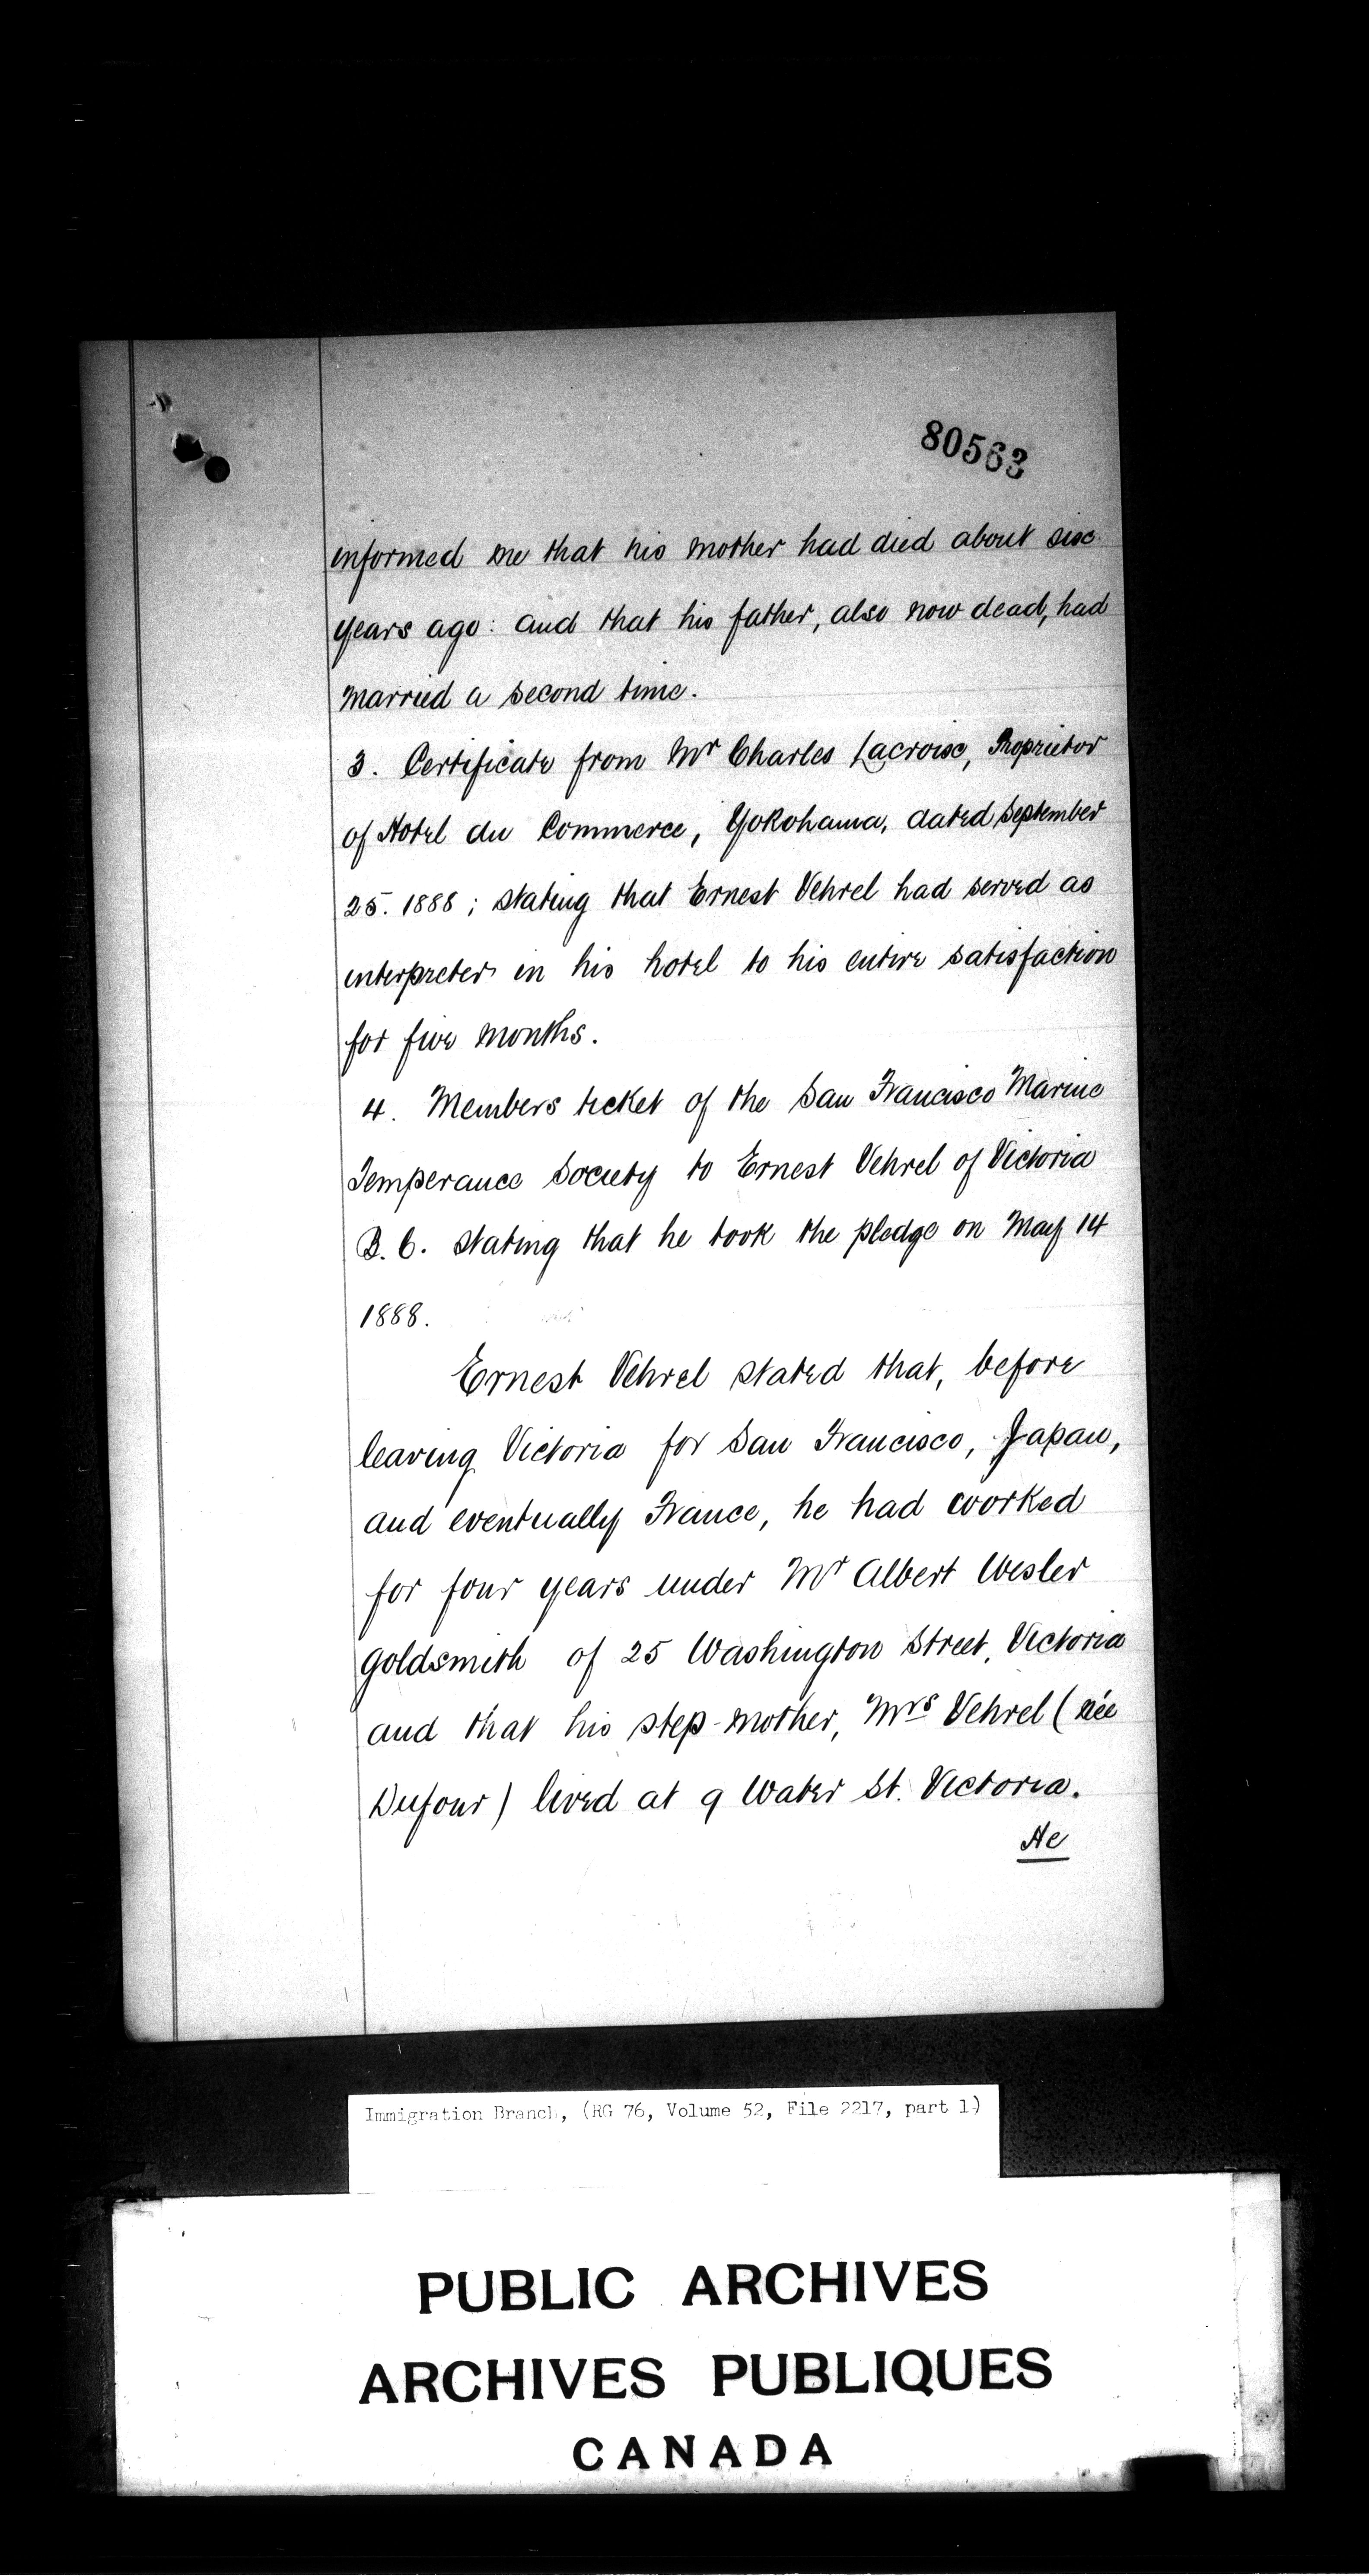 80563
informed me that his mother had died about six
years ago: and that his father, also now dead, had
married a second time.
3. Certificate from Mr Charles Lacroix, Proprietor
of Hotel du Commerce, Yokohama, dated September
25. 1888; stating that Ernest Vehrel had served as
interpreter in his hotel to his entire satisfaction
for five months.
4. Members ticket of the San Francisco Marine
Temperance Society to Ernest Vehrel of Victoria
B. C. stating that he took the pledge on May 14
1888.
Ernest Vehrel stated that, before
leaving Victoria for San Francisco, Japan,
and eventually France, he had worked
for four years under Mr Albert Wesler
goldsmith of 25 Washington Street, Victoria
and that his step-mother, Mrs Vehrel (née
Dufour) lived at 9 Water St. Victoria.
He
Immigration Branch, (RG 76, Volume 52, File 2217, part 1)
PUBLIC ARCHIVES
ARCHIVES PUBLIQUES
CANADA